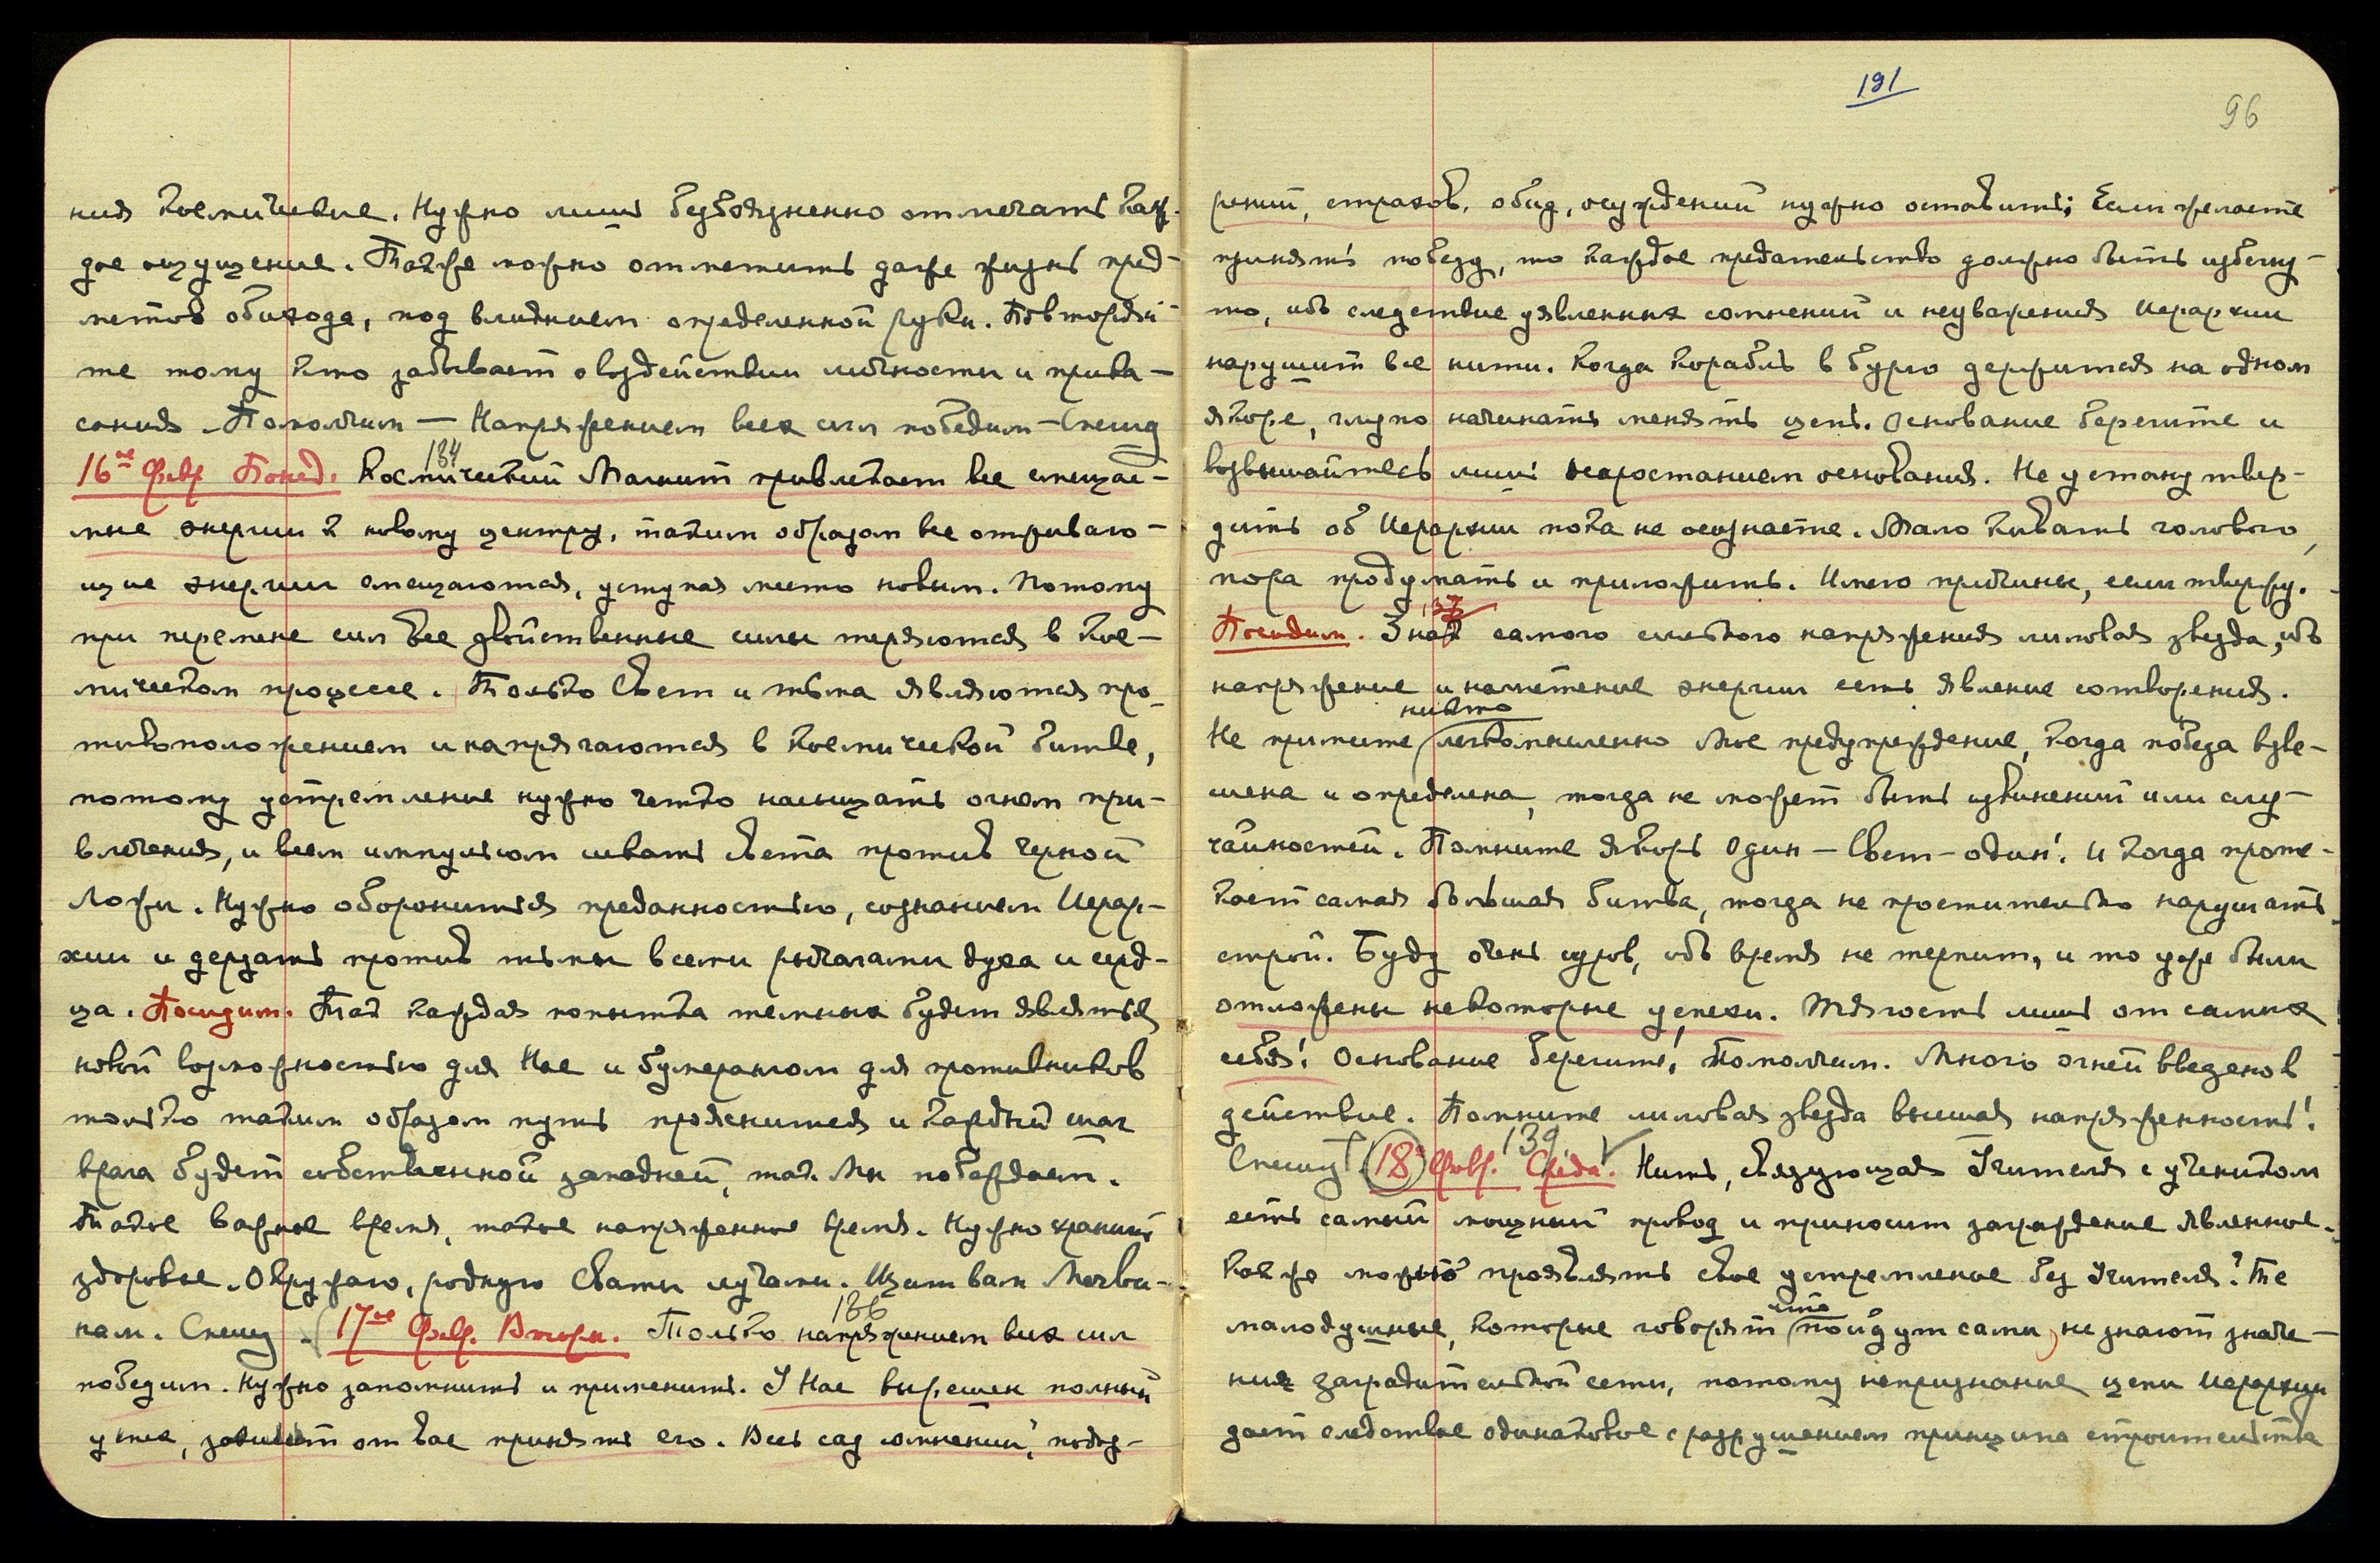 ния космические. Нужно лишь безбоязненно отмечать каж-
дое ощущение. Также можно отметить даже жизнь пред-
метов обихода, под влиянием определенной руки. Повторяй-
те тому кто забывает о воздействии личности и прика-
сания. Помолчим — Напряжением всех сил победим — Спешу
184
16ое Февр Понед. Космический Магнит привлекает все смещае-
мые энергии к новому центру, таким образом все отживаю-
щие энергии смещаются, уступая место новым. Потому
при перемене сил все двойственные силы теряются в кос-
мическом процессе. Только Свет и тьма являются про-
тивоположением и напрягаются в космической битве,
потому устремление нужно четко насыщать огнем при-
влечения, и всем импульсом искать света против черной
Ложи. Нужно оборониться преданностью, сознанием Иерар-
хии и дерзать против тьмы всеми рычагами духа и серд-
ца. Посидим. Так каждая попытка темных будет являться
новой возможностью для Нас и бумерангом для противников
только таким образом путь прояснится и каждый шаг
врага будет собственной западней, так Мы побеждаем.
Такое важное время, такое напряженное время. Нужно хранить
здоровье. Окружаю, родную Свати лучами. Щит вам Могвы-
нам. Спешу.
186
17ое Февр. Вторн. Только напряжением всех сил
победим. Нужно запомнить и применить. У Нас вырешен полный
успех, зависит от вас принять его. Весь сад сомнений, подоз-
191
96
рений, страхов, обид, осуждений нужно оставить; Если желаете
принять победу, то каждое предательство должно быть избегну-
то, ибо следствие уявленных сомнений и неуважения Иерархии
нарушит все нити. Когда корабль в бурю держится на одном
якоре, глупо начинать менять цепь. Основание берегите и
возвышайтесь лишь нарастанием основания. Не устану твер-
дить об Иерархии пока не осознаете. Мало кивать головою,
пора продумать и приложить. Имею причины, если твержу.
137
Посидим. Знак самого сильного напряжения лиловая звезда, ибо
напряжение и нагнетение энергии есть явление сотворения.
никто
Не примите легкомысленно Мое предупреждение, когда победа взве-
шена и определена, тогда не может быть извинений или слу-
чайностей. Помните Якорь Один — Свет — один! И когда проте-
кает самая большая битва, тогда не простительно нарушать
строй. Буду очень суров, ибо время не терпит, и то уже были
отложены некоторые успехи. Тягость лишь от самих
себя! Основание берегите! Помолчим. Много огней введено в
действие. Помните лиловая звезда высшая напряженность!
139
Спешу. 18 Февр. Среда. Нить, связующая Учителя с учеником
есть самый мощный провод и приносит заграждение явленное.
Как же можно проявлять свое устремление без Учителя? Те
что
малодушные, которые говорят пойдут сами, не знают значе-
ния заградительной сети, потому непризнание цепи Иерархии
дает следствие одинаковое с разрушением принципа строительства